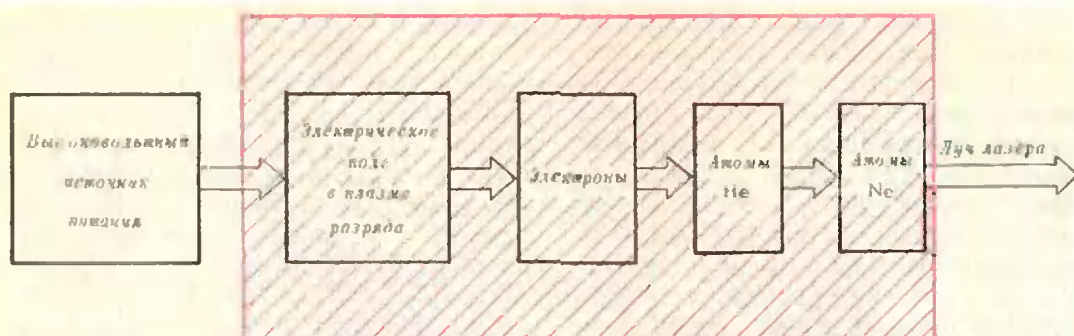 Высоковольтный
источник
питания
Электрическое
поле
в плазме
разряда
Электроны
Атомы
He
Атомы
Ne
Луч лазера